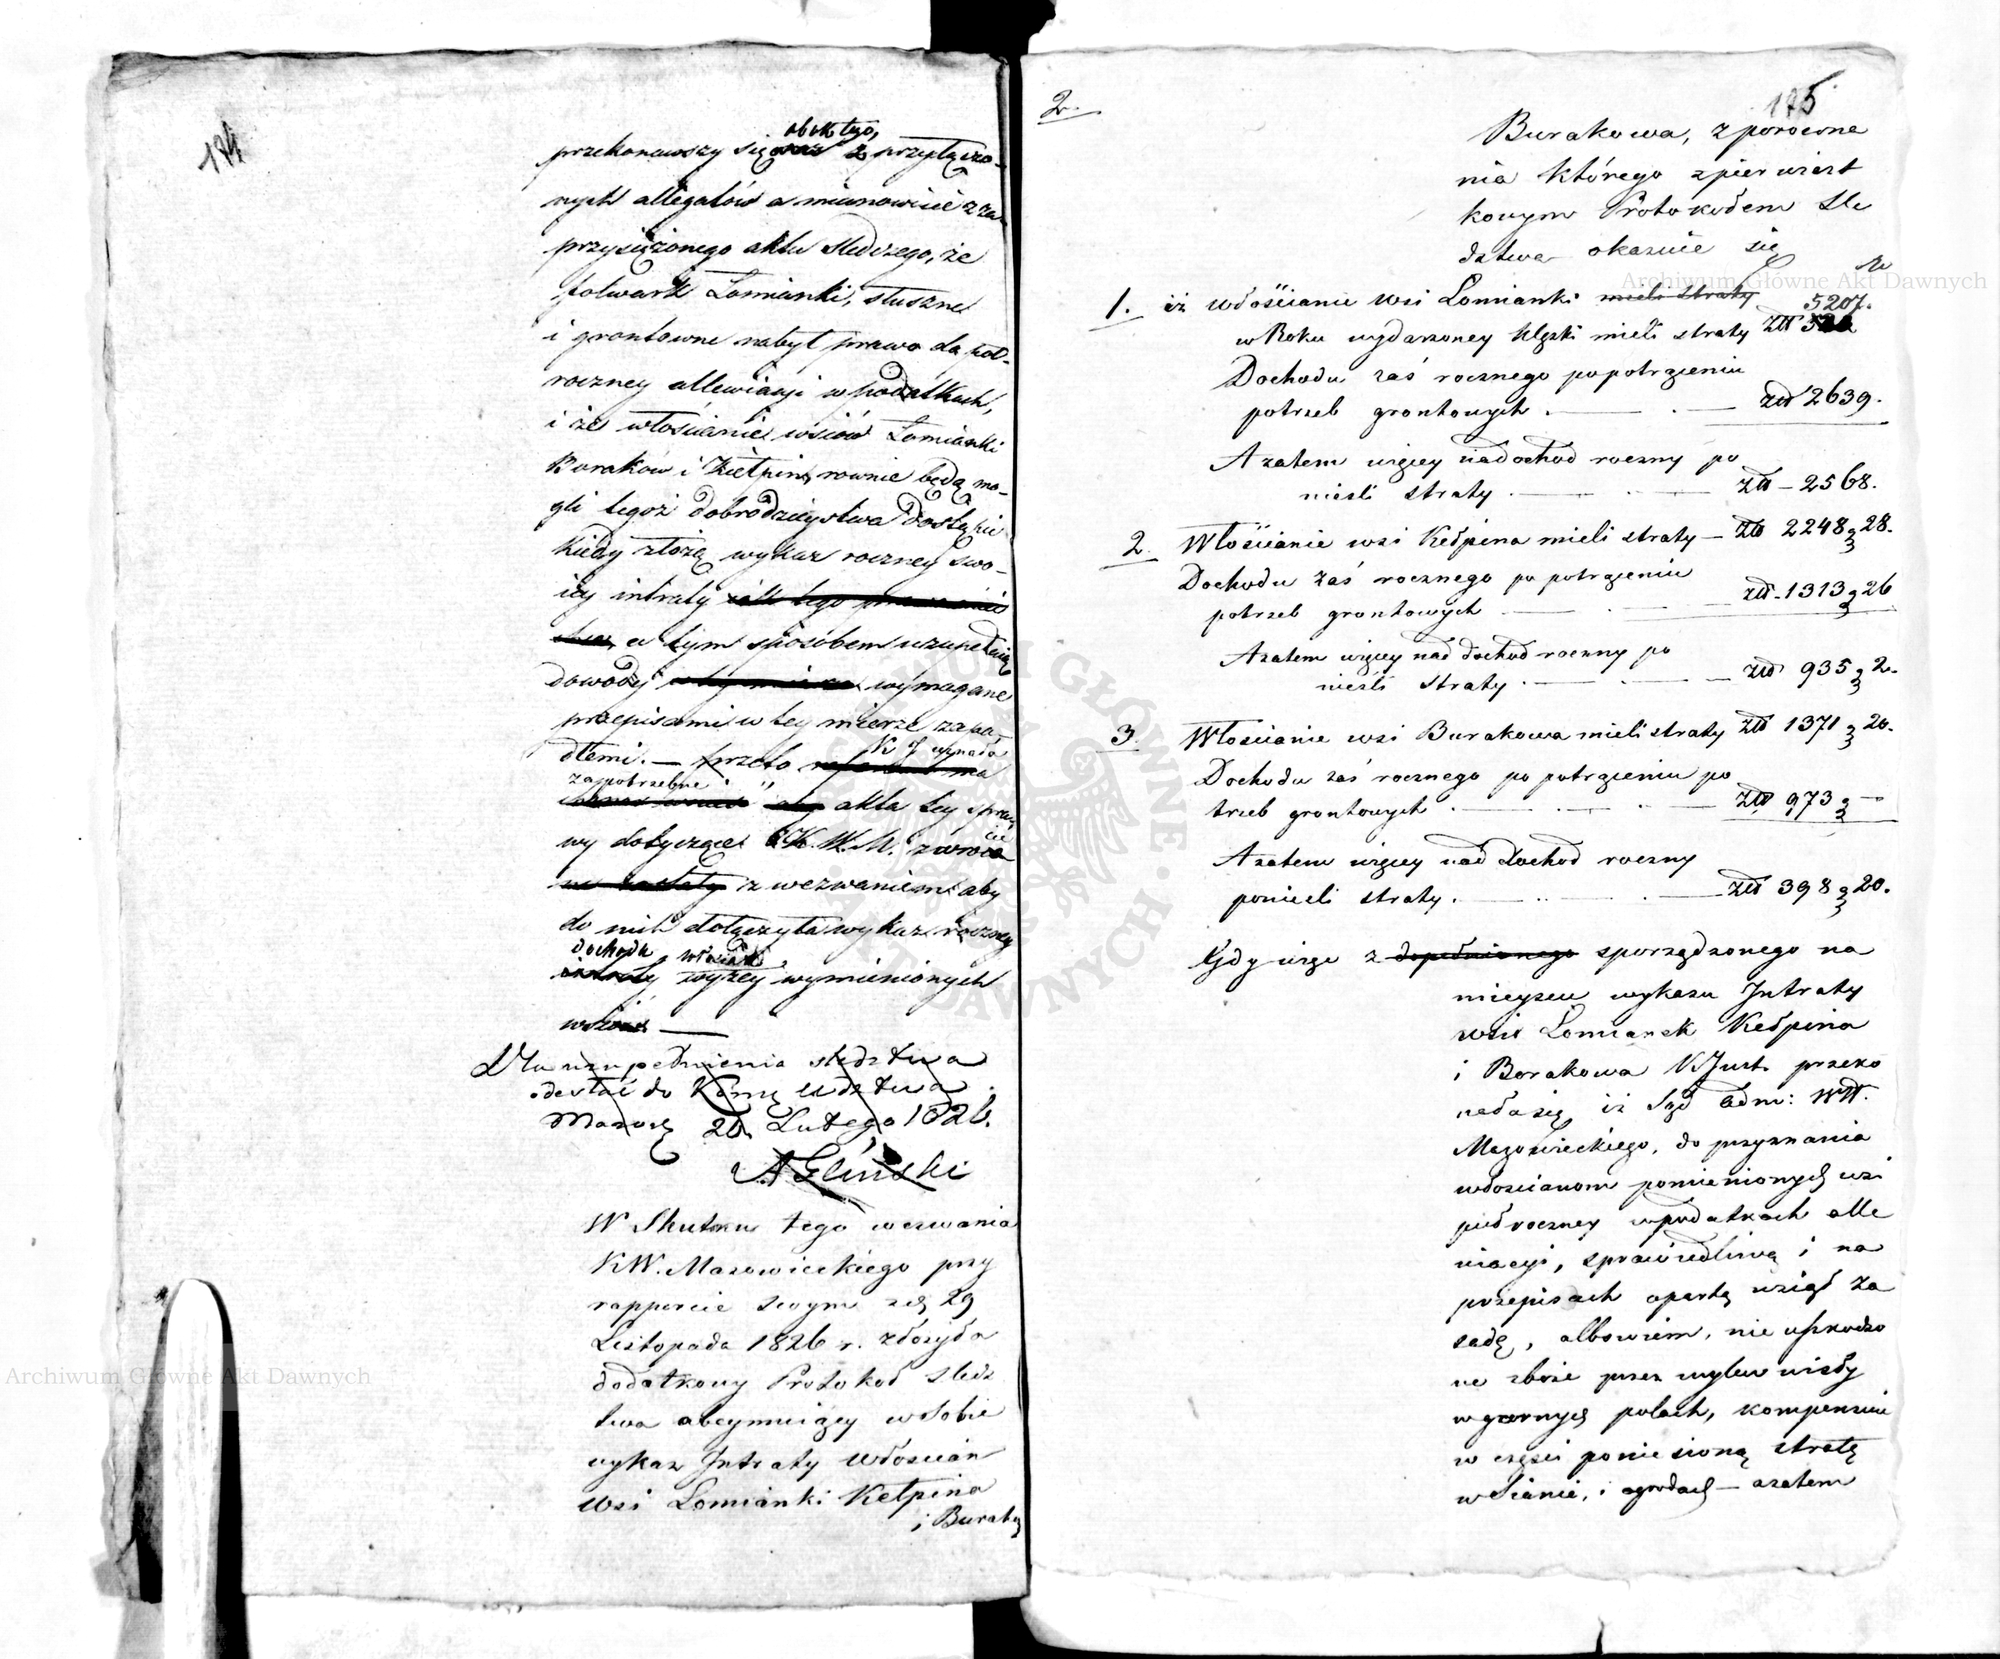 174
obok tego,
przekonawszy się z przyłączo-
nych allegatów a mianowicie z za
przysiężonego aktu śledczego, że
folwark Łomianki, słuszne
i grontowne nabył prawo do pół-
roczney allewiacyi w podatkach,
i że włościanie wsiów Łomianki
Buraków i Kiełpin, rownie będą mo-
gli tegoż dobrodzieystwa dostąpić
kiedy złożą wykaz roczney swo-
iey intraty
a tym sposobem uzupełnią
dowody wymagane
przepisami w tey mierze zapa
dłemi. — przeto
K J wypada
zapotrzebne
akta tey spra
wy dotyczące K. W. M. zwrócić
z wezwaniem aby
do nich dołączyła wykaz roczney
dochodu włościan
intraty wyżey wymienionych
wsiów —
Dla uzupełnienia śledztwa
odesłać do Komę Wdztwa
Mazow 20 Lutego 1826.
A Gliński
W Skutku tego wezwania
KW. Mazowieckiego przy
rapporcie swym zdę 29
Listopada 1826 r. złożyła
dodatkowy Protokoł śledz
twa obeymuiący w sobie
wykaz Intraty włościan
wsi Łomianki Kełpina
i Burako
2.
175
Burakowa, z porówna
nia którego z pierwiast
kowym Protokołem śle
dztwa okazuie się
1. iż włościanie wsi Łomianki mieli straty
5207.
w Roku wydarzoney klęski mieli straty zł
Dochodu zaś rocznego po potrąceniu
potrzeb grontowych . — . — zł 2639.
A zatem więcey nad dochod roczny po
nieśli straty . — . — zł — 2568.
2. Włościanie wsi Kełpina mieli straty — zł 2248 28.
Dochodu zaś rocznego po potrąceniu
potrzeb grontowych — . — zł. 1313 26
A zatem więcey nad dochod roczny po
nieśli straty . — . — zł 935 2.
3. Włościanie wsi Burakowa mieli straty zł 1371 20.
Dochodu zaś rocznego po potrąceniu po
trzeb grontowych . — . — zł 973 —
A zatem więcey nad dochod roczny
ponieśli straty . — . — zł 398 20.
Gdy więc z dopełnionego sporządzonego na
mieyscu wykazu Intraty
wsie Łomianek Kełpina
i Borakowa KJust. przeko
nała się, iż Sąd Adm: WW.
Mazowieckiego, do przyznania
włościanom pomienionych wsi
półroczney w podatkach alle
wiacyi, sprawiedliwą i na
przepisach opartą wziął za
sadę, albowiem, nie uszkodzo
ne zboże przez wylew wisły
w gornych polach, kompensuie
w części poniesioną stratę
w Sianie, i ogrodach — azatem
Archiwum Główne Akt Dawnych
Archiwum Główne Akt Dawnych